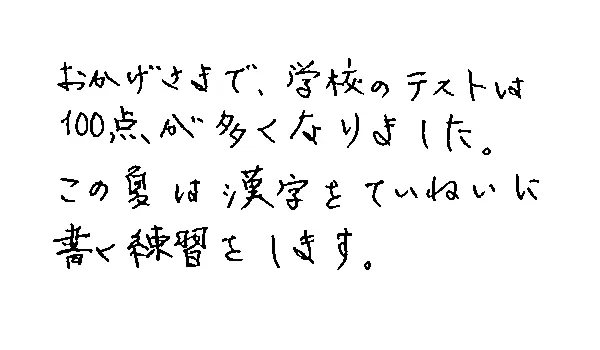 おかげさまで、学校のテストは
100点が多くなりました。
この夏は漢字をていねいに
書く練習をします。